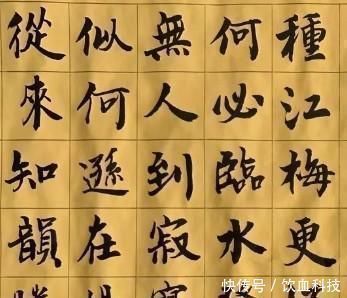 種江梅更
何必臨水
無人到寂
似何遜在
從來知韻
快传号 / 饮血科技